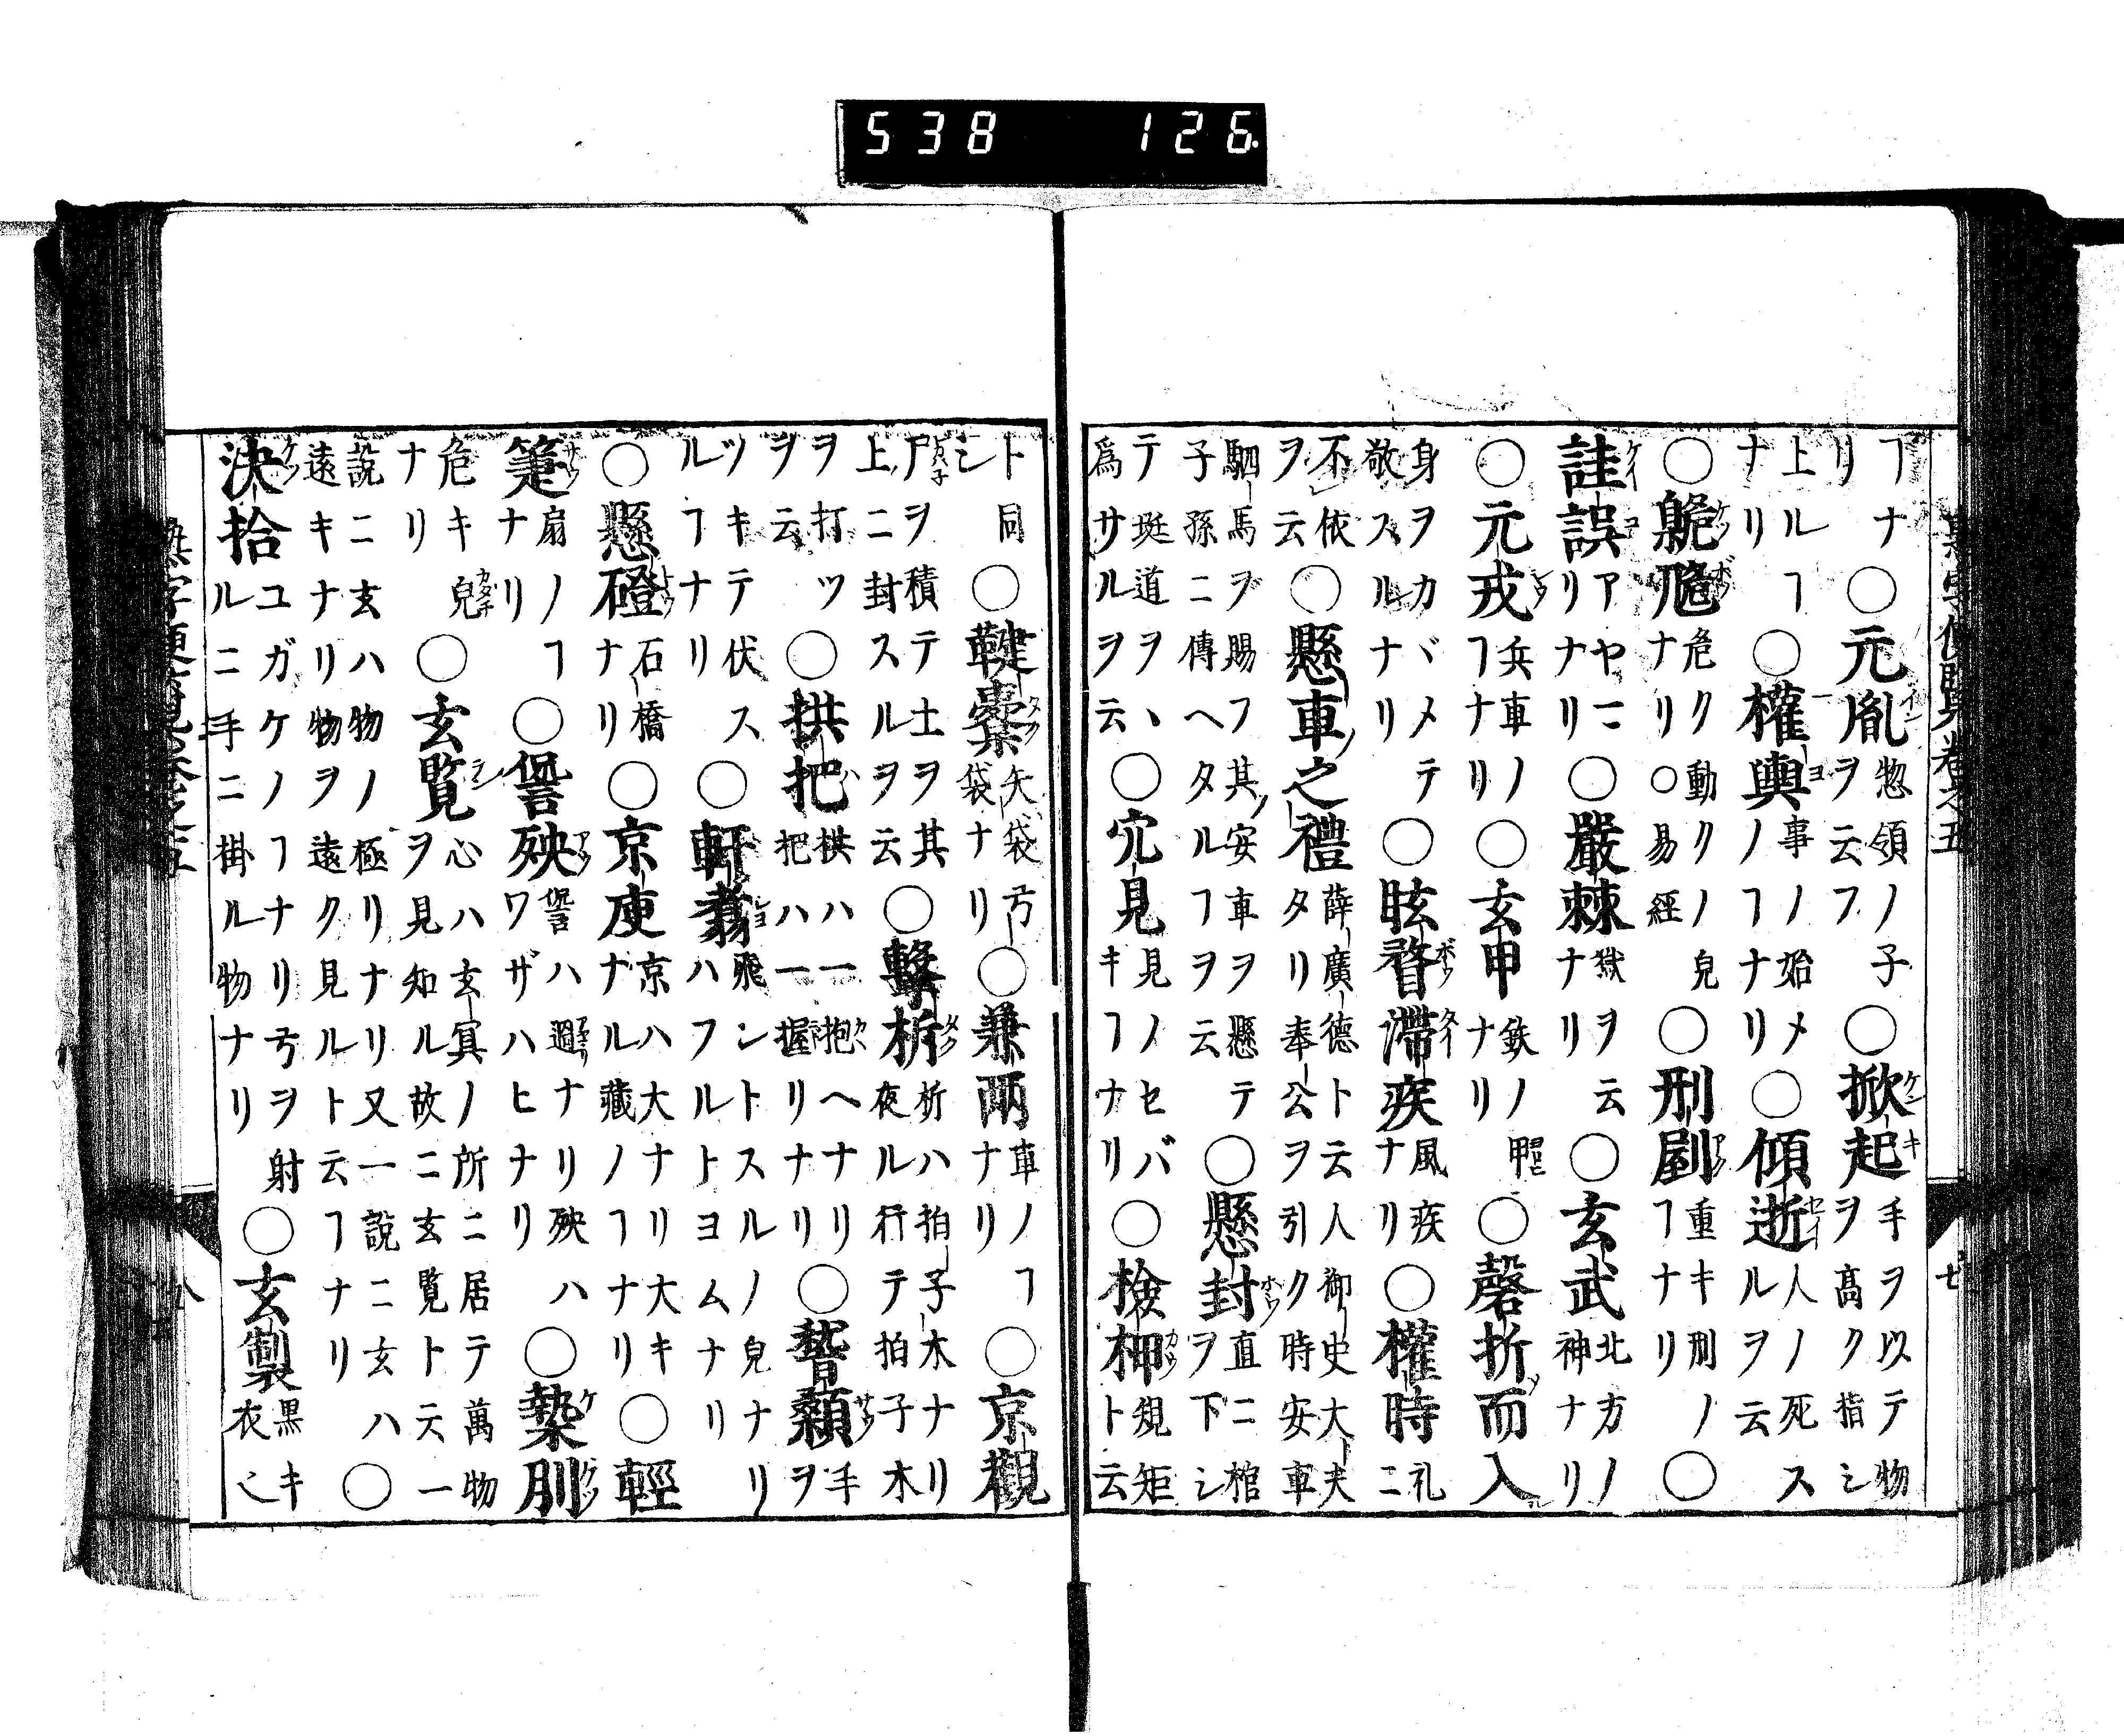 538 126
フナリ○元胤惣領ノ子ヲ云フ○掀起手ヲ以テ物ヲ高ク指シ
上ルフナリ○權輿事ノ始メノフナリ○傾逝人ノ死スルヲ云
○臲卼危ク動クノ皃ナリ○易經○刑剭重キ刑ノフナリ○
註誤アヤマリナリ○嚴棘獄ヲ云ナリ○玄武北方ノ神ナリ
○元戎兵車ノフナリ○玄甲鉄ノ甲ナリ○磬折而入
身ヲカヾメテ敬スルナリ○眩瞀滯疾風疾ナリ○權時礼ニ
不依ヲ云○懸車之禮薛廣德ト云人御史大夫タリ奉公ヲ引ク時安車
駟馬ヲ賜フ其安車ヲ懸テ子孫ニ傳ヘタルフヲ云○懸封直ニ棺ヲ下シ
テ埏道ヲ爲サルヲ云○穴見見ノセバキフナリ○檢柙規矩ト云
ト同シ○鞬櫜矢袋弓袋ナリ○兼兩車ノフナリ○京觀
尸ヲ積テ土ヲ其上ニ封スルヲ云○擊柝柝ハ拍子木ナリ夜ル行テ拍子木
ヲ打ツヲ云○拱把拱ハ一抱ヘナリ把ハ一握リナリ○稽顙手ヲ
ツキテ伏スルフナリ○軒翥飛ントスルノ皃ナリハフルトヨムナリ
○懸磴石橋ナリ○京庾京ハ大ナリ大キナル藏ノフナリ○輕
箑扇ノフナリ○殃ハ過ナリ殃ハワザハヒナリ○槷刖
危キ皃ナリ○玄覧心ハ玄冥ノ所ニ居テ萬物ヲ見知ル故ニ玄覧ト云一
説ニ玄ハ物ノ極リナリ又一説ニ玄ハ遠キナリ物ヲ遠ク見ルト云フナリ○
決拾ユガケノフナリ弓ヲ射ルニ手ニ掛ル物ナリ○玄製黒キ衣